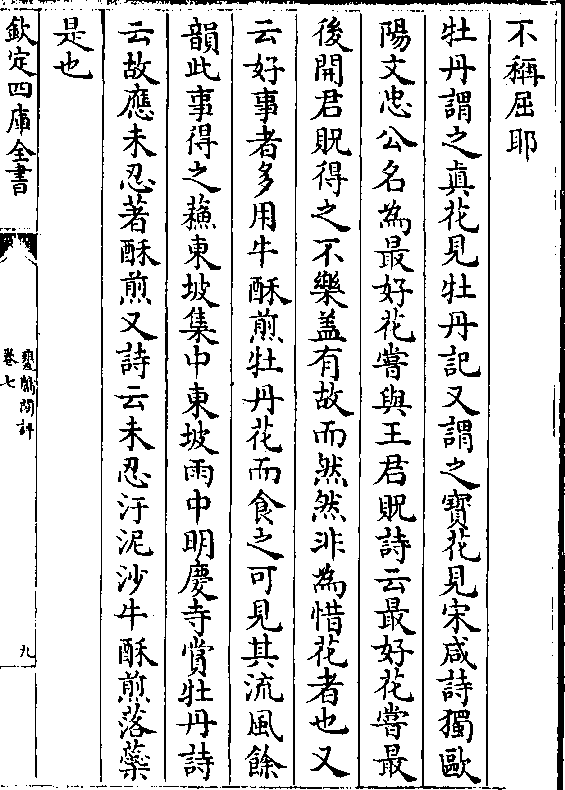 不稱屈耶
牡丹謂之真花見牡丹記又謂之寳花見宋咸詩獨歐
陽文忠公名為最好花嘗與王君貺詩云最好花嘗最
後開君貺得之不樂盖有故而然然非為惜花者也又
云好事者多用牛酥煎牡丹花而食之可見其流風餘
韻此事得之蘓東坡集中東坡雨中明慶寺賞牡丹詩
云故應未忍著酥煎又詩云未忍汙泥沙牛酥煎落蘂
是也
欽定四庫全書
甕牖閒評
卷七
九